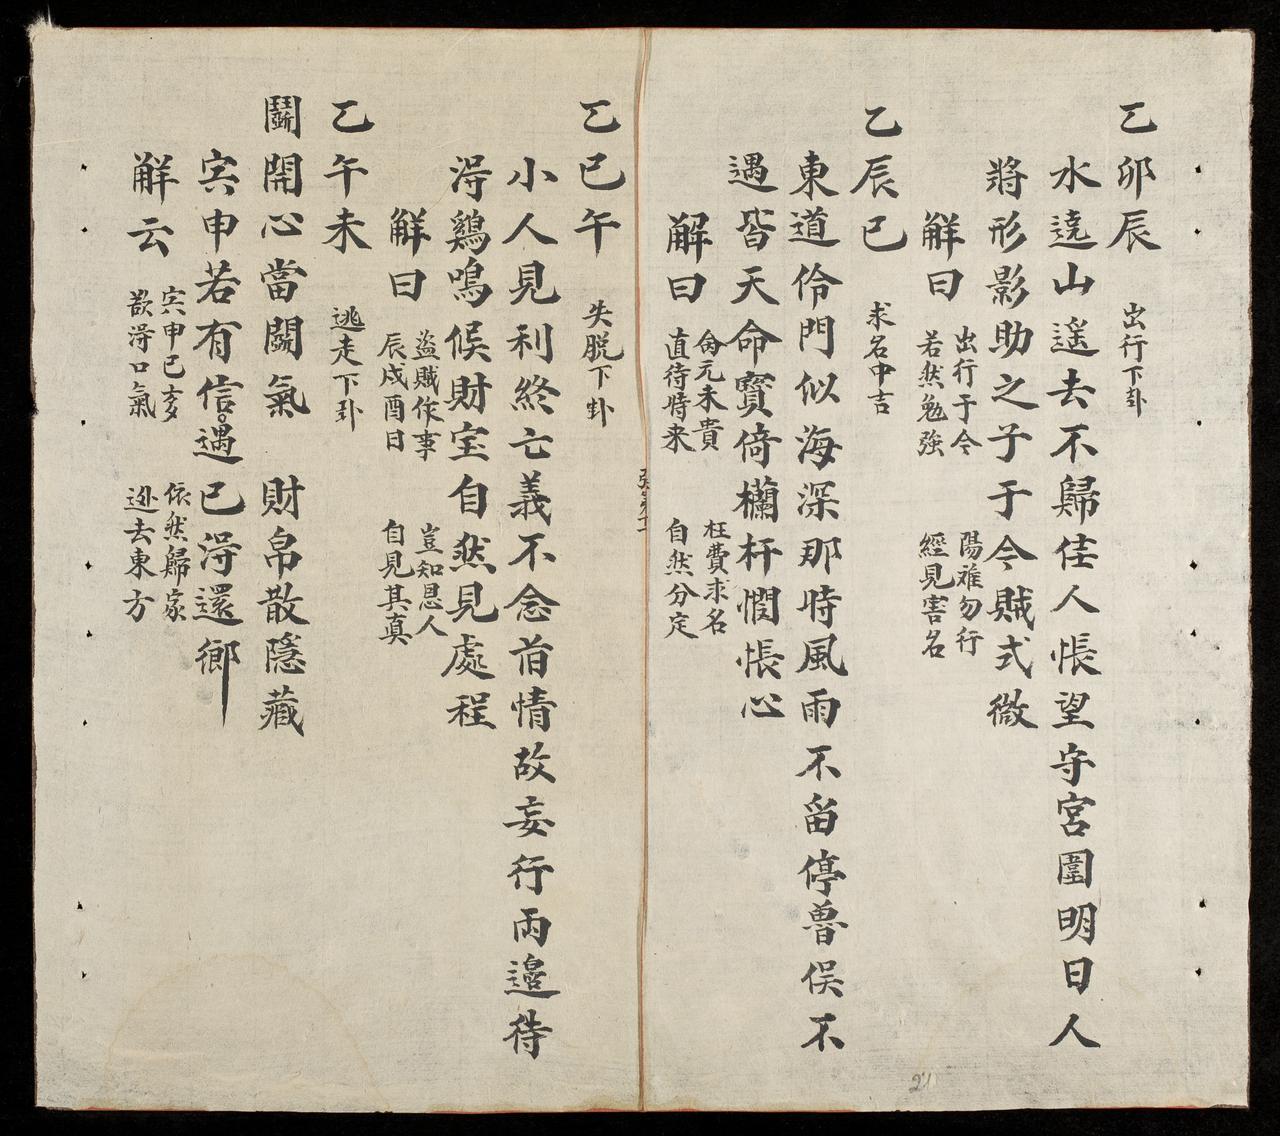 乙卯辰 出行下卦
水遶山遥去不歸佳人悵望守宮圍明日人
將形影助之子于今賊式微
解曰 出行于今 陽难勿行
若然勉強 經見害名
乙辰巳 求名中吉
東道伶門似海深那時風雨不留停曾俣不
遇皆天命寳倚欄杆憫悵心
解曰 尙元未貴 枉費求名
直待時来 自然分定
乙巳午 失脱下卦
小人見利終亡義不念前情故妄行兩邉待
淂鷄鳴候財宝自然見處程
解曰 盗賊作事 豈知恩人
辰戍酉日 自見其真
乙午未 逃走下卦
鬭開心當鬭氣 財帛散隱藏
寅申若有信遇已淂還鄉
解云 寅申巳亥 依然歸家
欲淂口氣 逊去東方
21